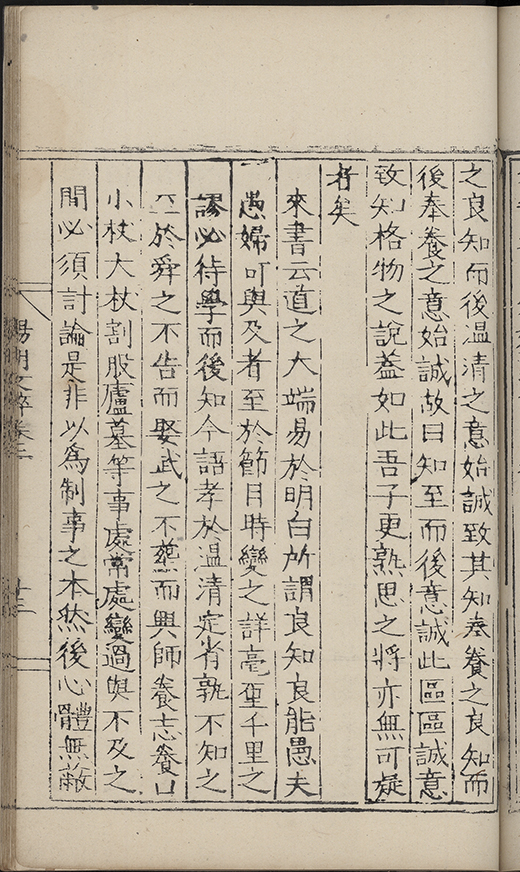 之良知而後温凊之意始誠致其知奉養之良知而
後奉養之意始誠故曰知至而後意誠此區區誠意
致知格物之說葢如此吾子更熟思之將亦無可疑
者矣
來書云道之大端易於明白所謂良知良能愚夫
愚婦可與及者至於節目時變之詳毫厘千里之
謬必待學而後知今語孝於温凊定省孰不知之
至於舜之不告而娶武之不塟而興師養志養口
小杖大杖割股廬墓等事處常處變過與不及之
間必須討論是非以為制事之本然後心體無蔽
陽明文粹卷二
十三